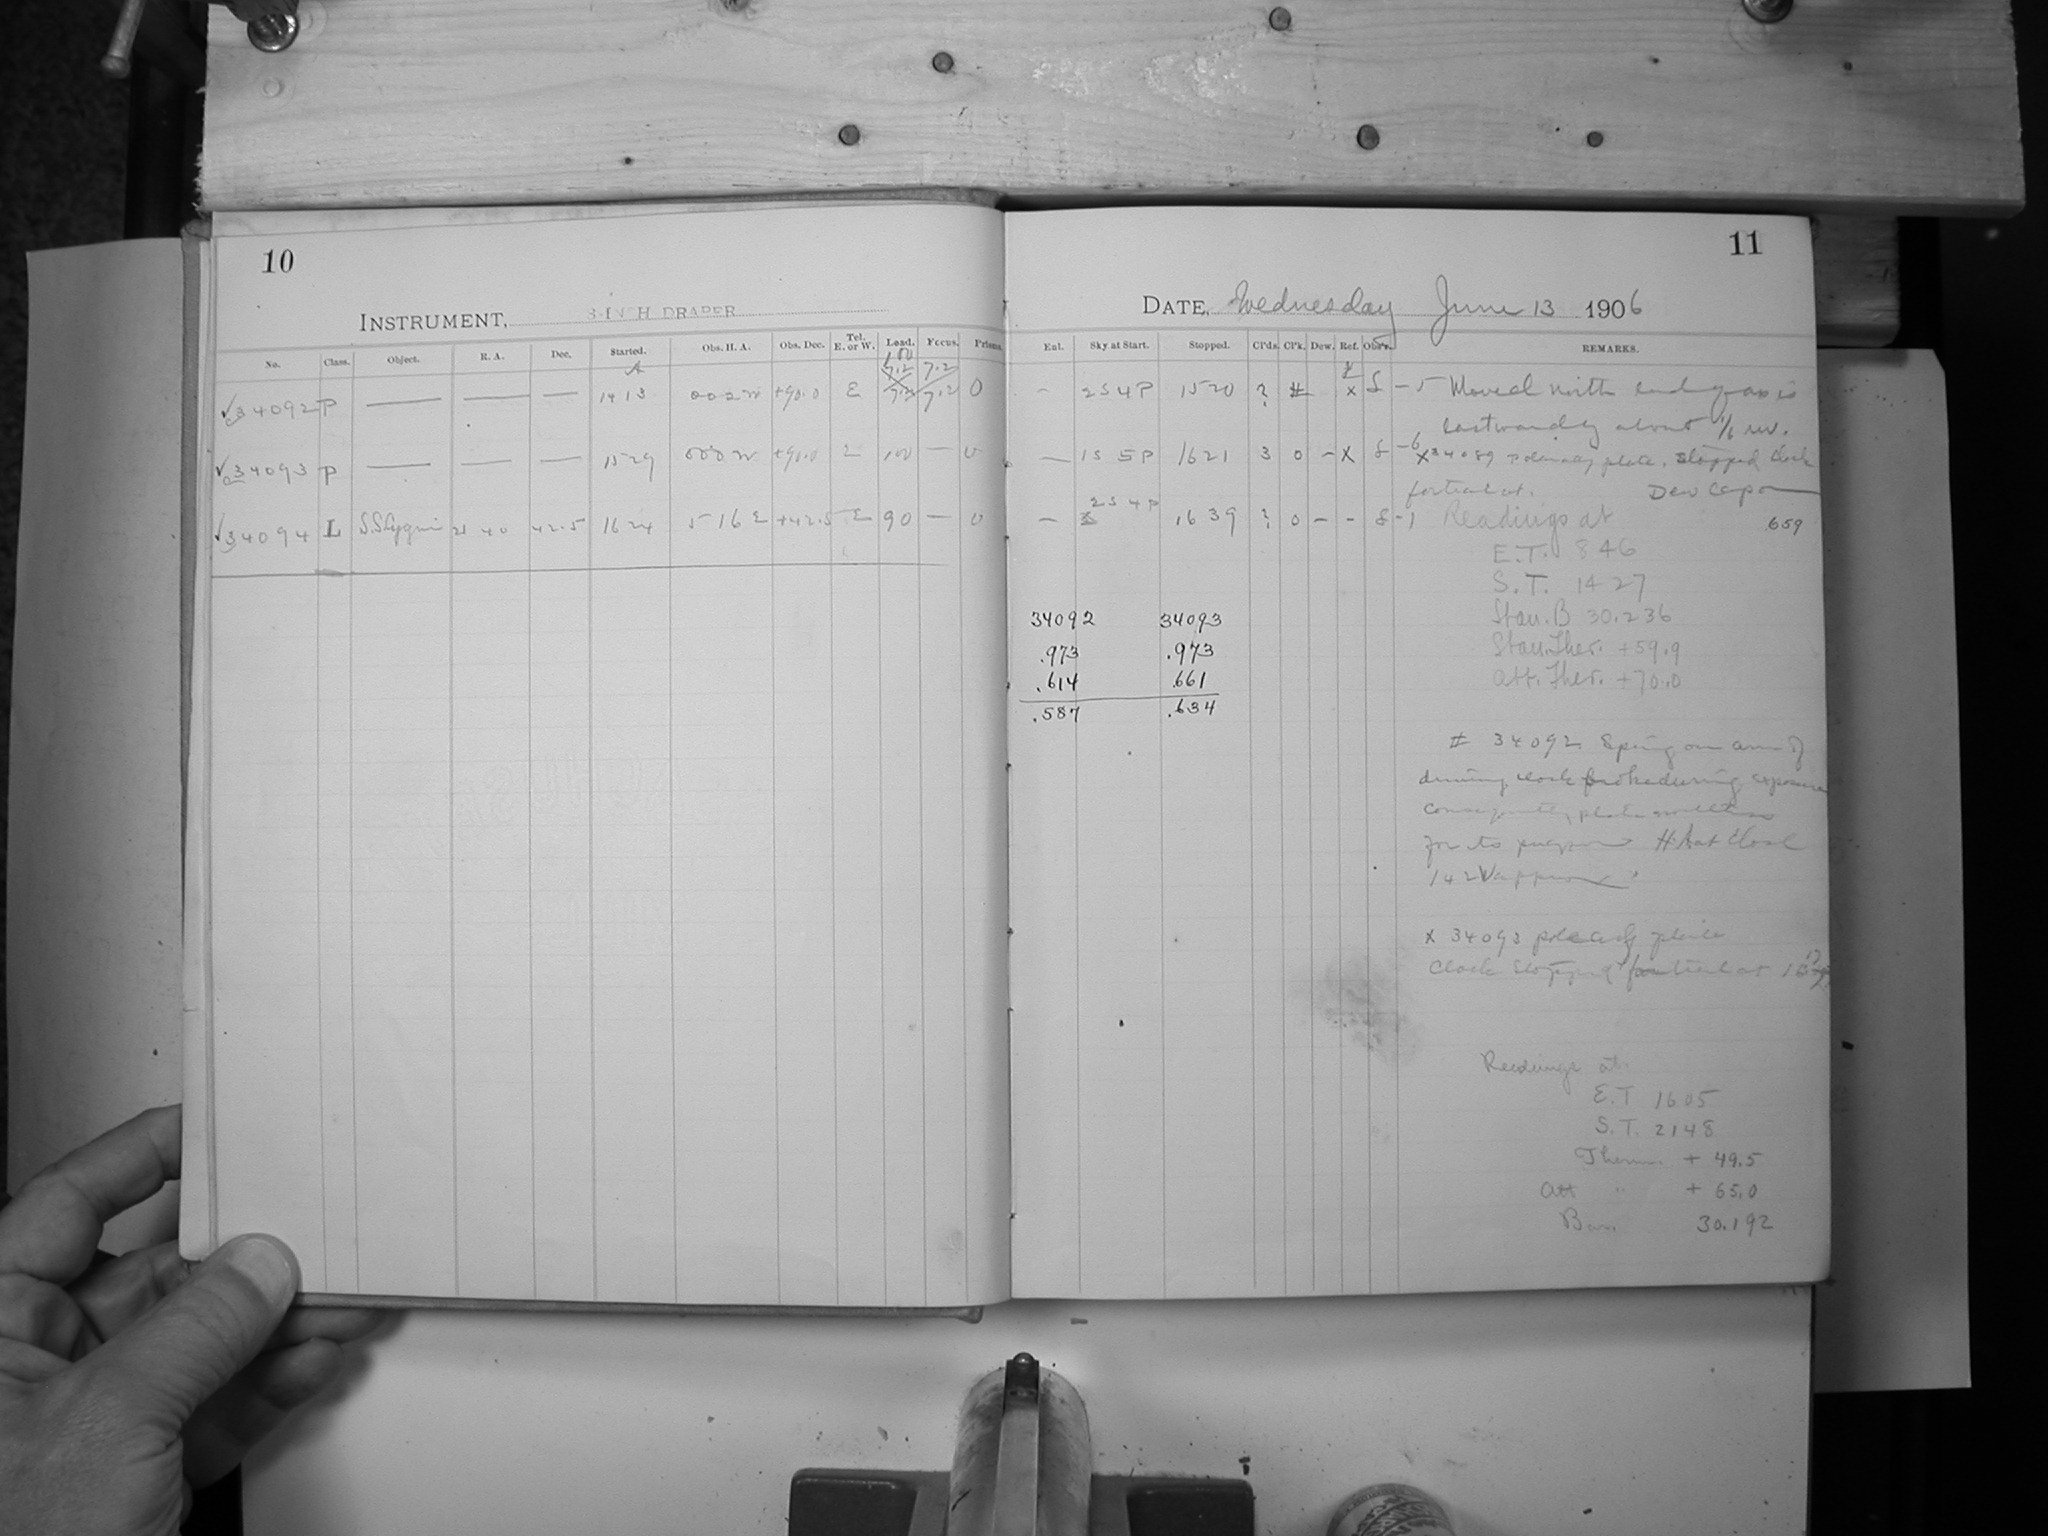 10
INSTRUMENT, 8-INCH DRAPER
No. Class. Object. R. A. Dec. Started. Obs. H. A. Obs. Dec. Tel. E. or W. Lead. Focus. Prisms.
√34092 P — — — 1413 002 W +90.0 E 7.2 0
√34093 P — — — 1529 000 W +90.0 E 100 — 0
√34094 L SS Cygni 21 40 42.5 1624 5 16 E +42.5 E 90 — 0
11
DATE, Wednesday June 13 1906
Enl. Sky at Start. Stopped. Cl'ds. Cl'k. Dew. Ref. Obs'r. REMARKS.
- 2S4P 1520 ? # x S -5 Moved north end of axis
eastwardly about 1/6 rev.
— 1S5P 1621 3 0 - x S -6 x34089 polaris plate. Stopped clock
for trail at. Dew cap on
- 2S4P 1639 ? 0 - - S -1 Readings at 659
E.T. 846
S.T. 1427
Stan. B 30.236
Stan. Ther. +59.9
Att. Ther. +70.0
34092 34093
.973 .973
.614 .661
.587 .634
# 34092 Spring on arm of
driving clock broke during exposure
consequently plate worthless
for its purpose H.A at close
142W approx
x 34093 plate
Clock stopped for trail at
Readings at
E.T 1605
S.T. 2148
Therm. + 49.5
Att " + 65.0
Bar. 30.192